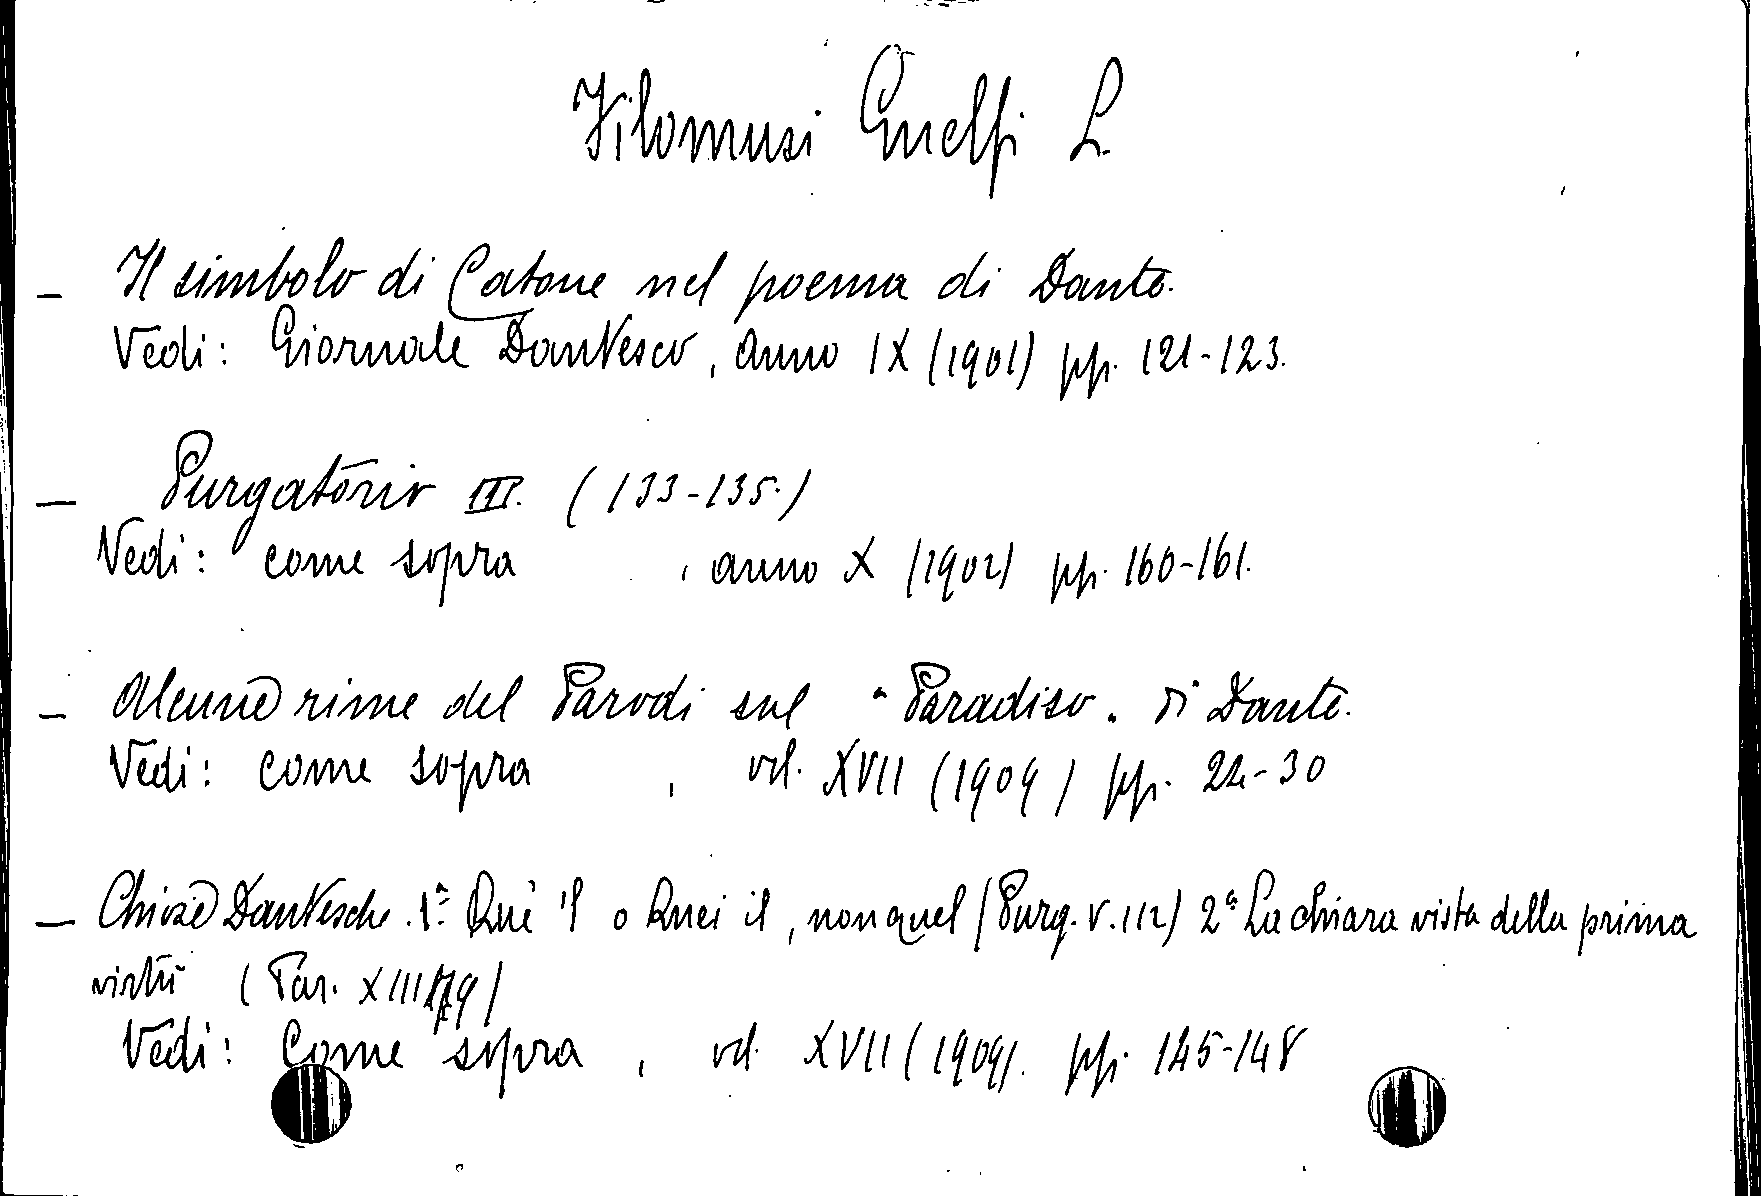 Filomusi Guelfi L.
— Il simbolo di Catone nel poema di Dante.
Vedi: Giornale Dantesco, anno IX (1901) pp. 121-123.
— Purgatorio III. (133-135.)
Vedi: come sopra , anno X (1902) pp. 160-161.
— Alcune rime del Parodi sul "Paradiso" di Dante.
Vedi: come sopra , vol. XVII (1909) pp. 22-30
— Chiose Dantesche. 1ª Què 'l o Quei il, non quel (Purg. V. 112) 2ª La chiara vista della prima
virtù (Par. XIII 79)
Vedi: Come sopra , vol. XVII (1909). pp. 145-148